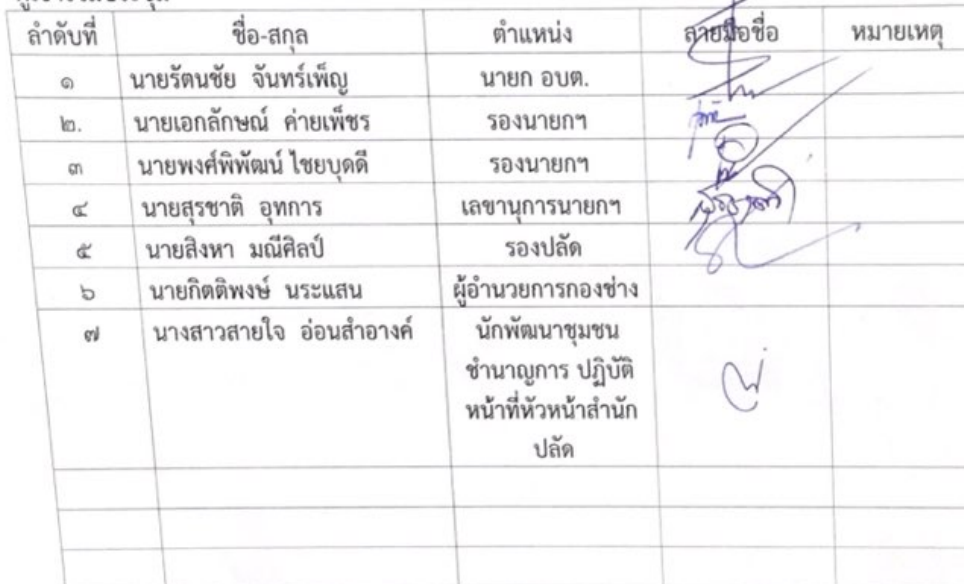 ลำดับที่ ชื่อ-สกุล ตำแหน่ง ลายมือชื่อ หมายเหตุ
๑ นายรัตนชัย จันทร์เพ็ญ นายก อบต.
๒. นายเอกลักษณ์ ค่ายเพ็ชร รองนายกฯ
๓ นายพงศ์พิพัฒน์ ไชยบุดดี รองนายกฯ
๔ นายสุรชาติ อุทการ เลขานุการนายกฯ
๕ นายสิงหา มณีศิลป์ รองปลัด
๖ นายกิตติพงษ์ นระแสน ผู้อำนวยการกองช่าง
๗ นางสาวสายใจ อ่อนสำอางค์ นักพัฒนาชุมชน
ชำนาญการ ปฏิบัติ
หน้าที่หัวหน้าสำนัก
ปลัด